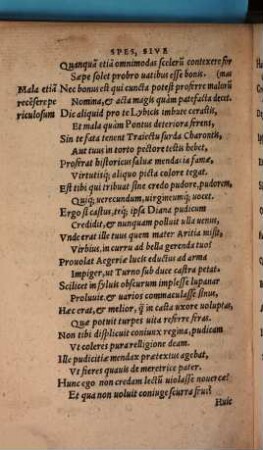 SPES, SIVE
Quanquã etiã omnimodas scelerũ contexere for
Sæpe solet probro uatibus esse bonis. (mas
Mala etiã Nec bonus est qui cuncta potest proferre malorũ
recẽsere pe Nomina, & acta magis quàm patefacta decet.
riculosum Dic aliquid pro te Lybicis imbute cerastis,
Et mala quàm Pontus deteriora ferent,
Sin te fata tenent Traiectu surda Charontis,
Aut tuus in torto pectore testis hebet,
Proferat historicus saluè mendacia famæ,
Virtutisq́; aliquo picta colore tegat.
Est tibi qui tribuat sine credo pudore, pudorem,
Quiq́; uerecundum, uirgineumq́; uocet.
Ergo si castus, triq́; ipsa Diana pudicum
Credidit, & nunquam polluit ulla uenus,
Vnde erat ille tuus quem mater Aritia misit,
Virbius, in curru ad bella gerenda tuo?
Prouolat Aegeriæ lucis eductus ad arma
Impiger, ut Turno sub duce castra petat.
Scilicet in syluis obscurum implesse lupanar
Proluuit, & uarios commaculasse sinus,
Hæc erat, & melior, q̃ in casta uxore uoluptas,
Quæ potuit turpes uita referre feras.
Non tibi displicuit coniunx regina, pudicam
Vt coleres pura relligione deam.
Ille pudicitiæ mendax prætextus agebat,
Vt fieres quauis de meretrice pater.
Hunc ego non credam lectũ uiolasse nouercæ?
Et qua non uoluit coniuge scurra frui?
Huic